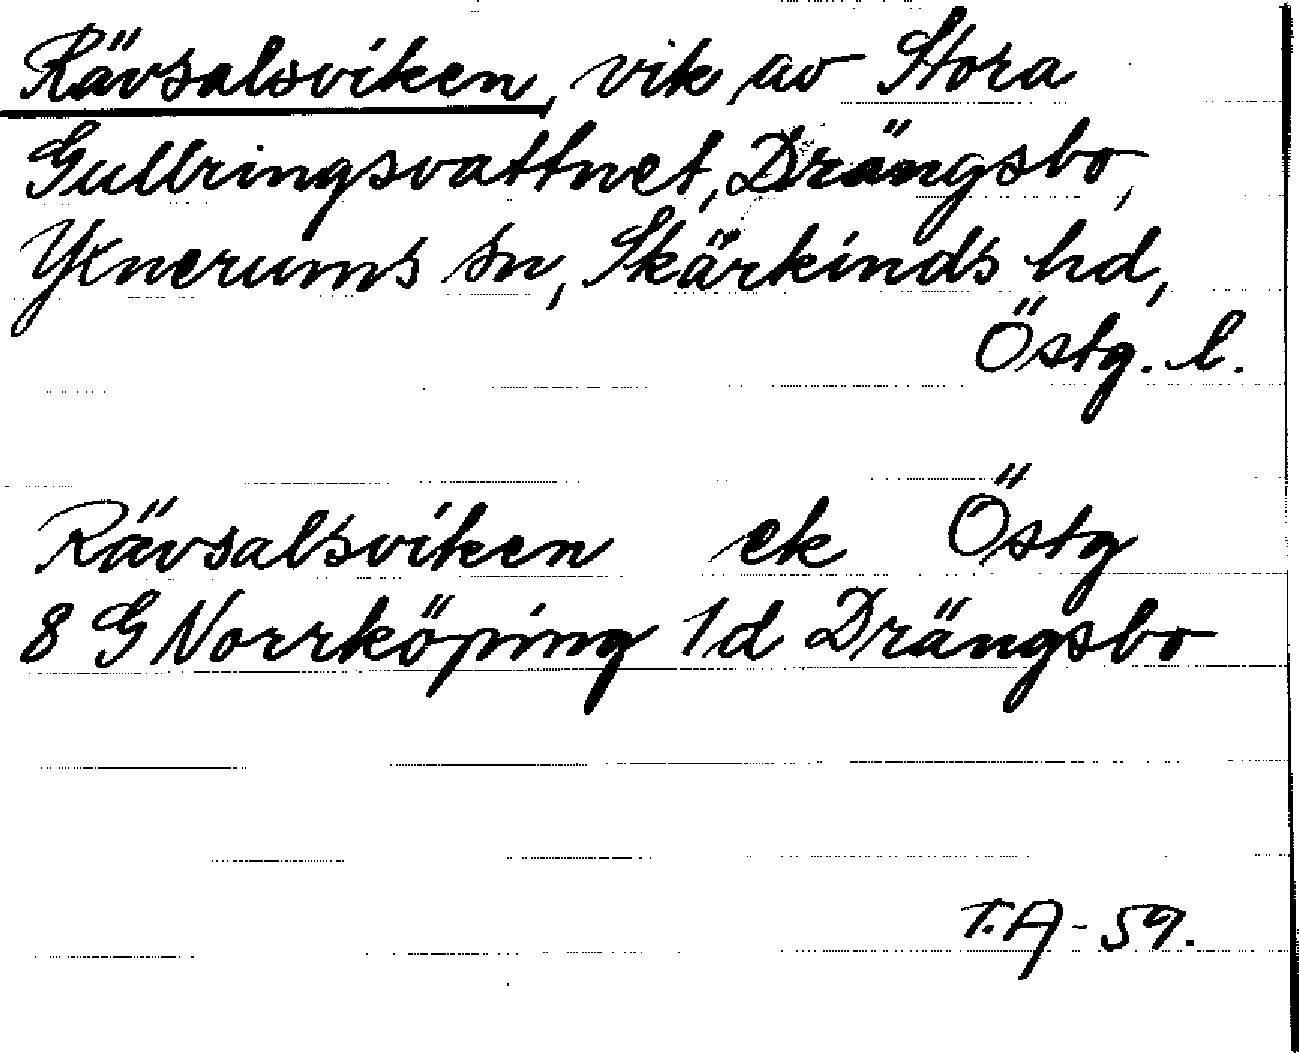 Rävsalsviken, vik av Stora
Gullringsvattnet, Drängsbo,
Yxnerums sn, Skärkinds hd,
Östg. l.
Rävsalsviken ek Östg
8 G Norrköping 1d Drängsbo
T.A - 59.